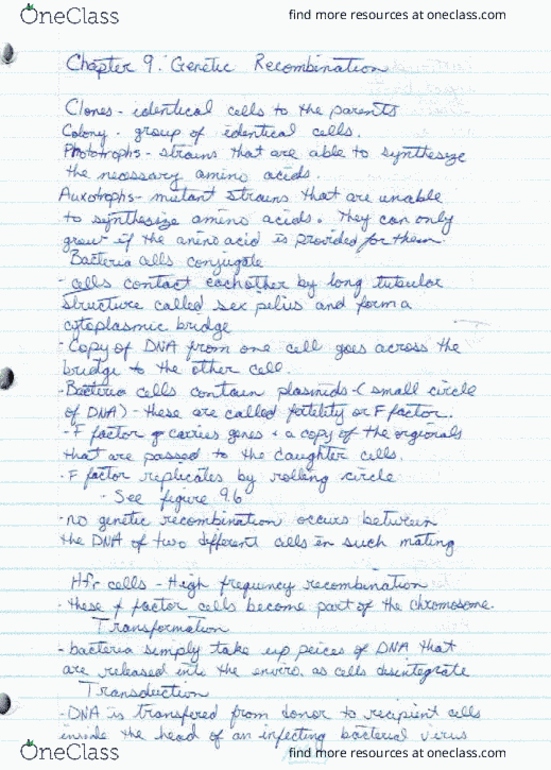 OneClass
find more resources at oneclass.com
Chapter 9: Genetic Recombination
Clones - identical cells to the parents
Colony - group of identical cells.
Phototrophs - strains that are able to synthesize
the necessary amino acids.
Auxotrophs - mutant strains that are unable
to synthesize amino acids. They can only
grow if the amino acid is provided for them.
Bacteria cells conjugate
- cells contact eachother by long tubular
structure called sex pilus and form a
cytoplasmic bridge
- Copy of DNA from one cell goes across the
bridge to the other cell.
- Bacteria cells contain plasmids - (small circle
of DNA) - these are called fertility or F factor.
- F factor carries genes + a copy of the orgionals
that are passed to the daughter cells.
- F factor replicates by rolling circle
- See figure 9.6
- no genetic recombination occurs between
the DNA of two different cells in such mating
Hfr cells - High frequency recombination
- these f factor cells become part of the chromosome.
Transformation
- bacteria simply take up peices of DNA that
are released into the enviro. as cells disintegrate
Transduction
- DNA is transfered from donor to recipient cells
inside the head of an infecting bacterial virus
OneClass
find more resources at oneclass.com